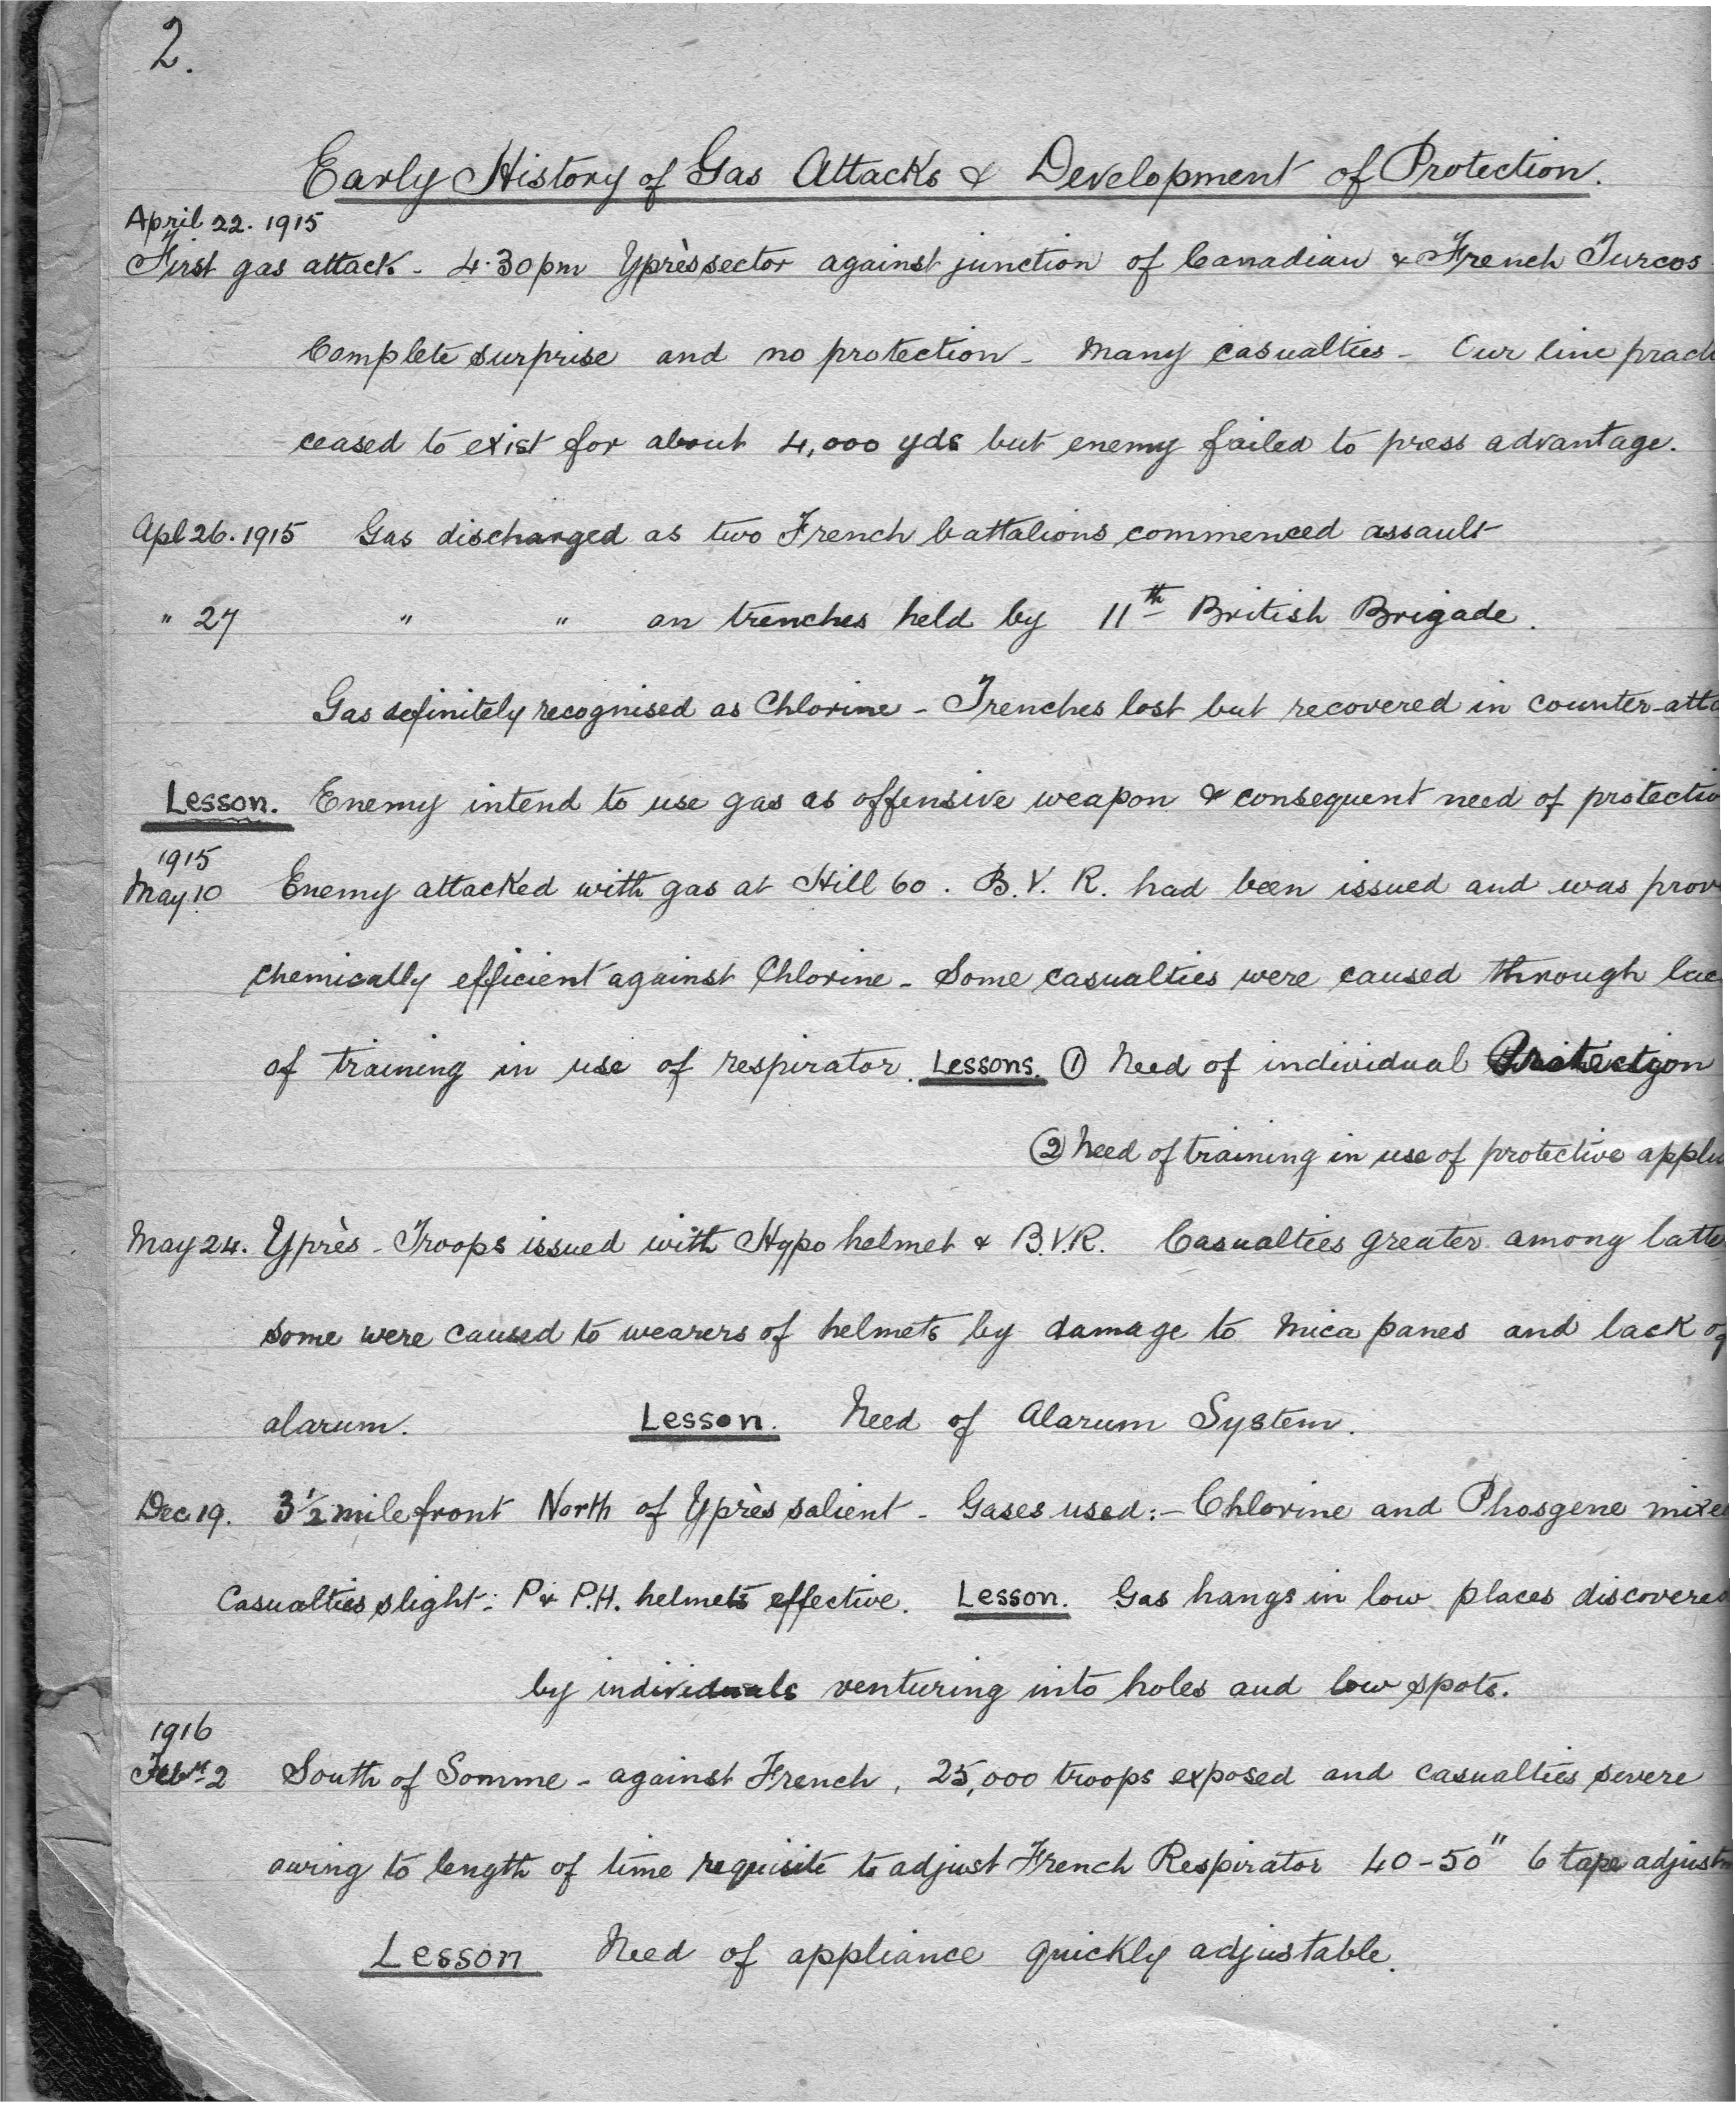 2.
Early History of Gas Attacks & Development of Protection.
April 22. 1915
First gas attack - 4.30pm Yprès sector against junction of Canadian & French Turcos
Complete surprise and no protection - Many casualties - Our line
ceased to exist for about 4,000 yds but enemy failed to press advantage.
Apl 26. 1915 Gas discharged as two French battalions commenced assault
" 27 " " on trenches held by 11th British Brigade.
Gas definitely recognised as Chlorine - Trenches lost but recovered in counter-
Lesson. Enemy intend to use gas as offensive weapon & consequent need of
1915
May 10 Enemy attacked with gas at Hill 60. B.V.R. had been issued and was
chemically efficient against Chlorine - Some casualties were caused through
of training in use of respirator. Lessons. ① Need of individual Protection
② Need of training in use of protective
May 24. Yprès - Troops issued with Hypo helmet & B.V.R. Casualties greater among
some were caused to wearers of helmets by damage to mica panes and lack of
alarum. Lesson. Need of Alarum System.
Dec 19. 3½ mile front North of Yprès salient - Gases used:- Chlorine and Phosgene
Casualties slight: P & P.H. helmets effective. Lesson. Gas hangs in low places discovered
by individuals venturing into holes and low spots.
1916
2 South of Somme - against French, 25,000 troops exposed and casualties severe
owing to length of time requisite to adjust French Respirator 40-50" 6 tape
Lesson Need of appliance quickly adjustable.